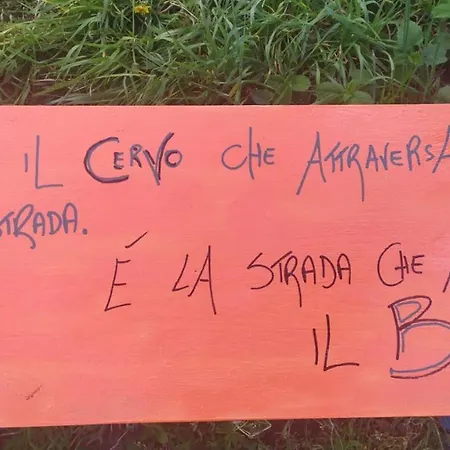 IL CERVO CHE ATTRAVERSA
STRADA.
É LA STRADA CHE
IL B